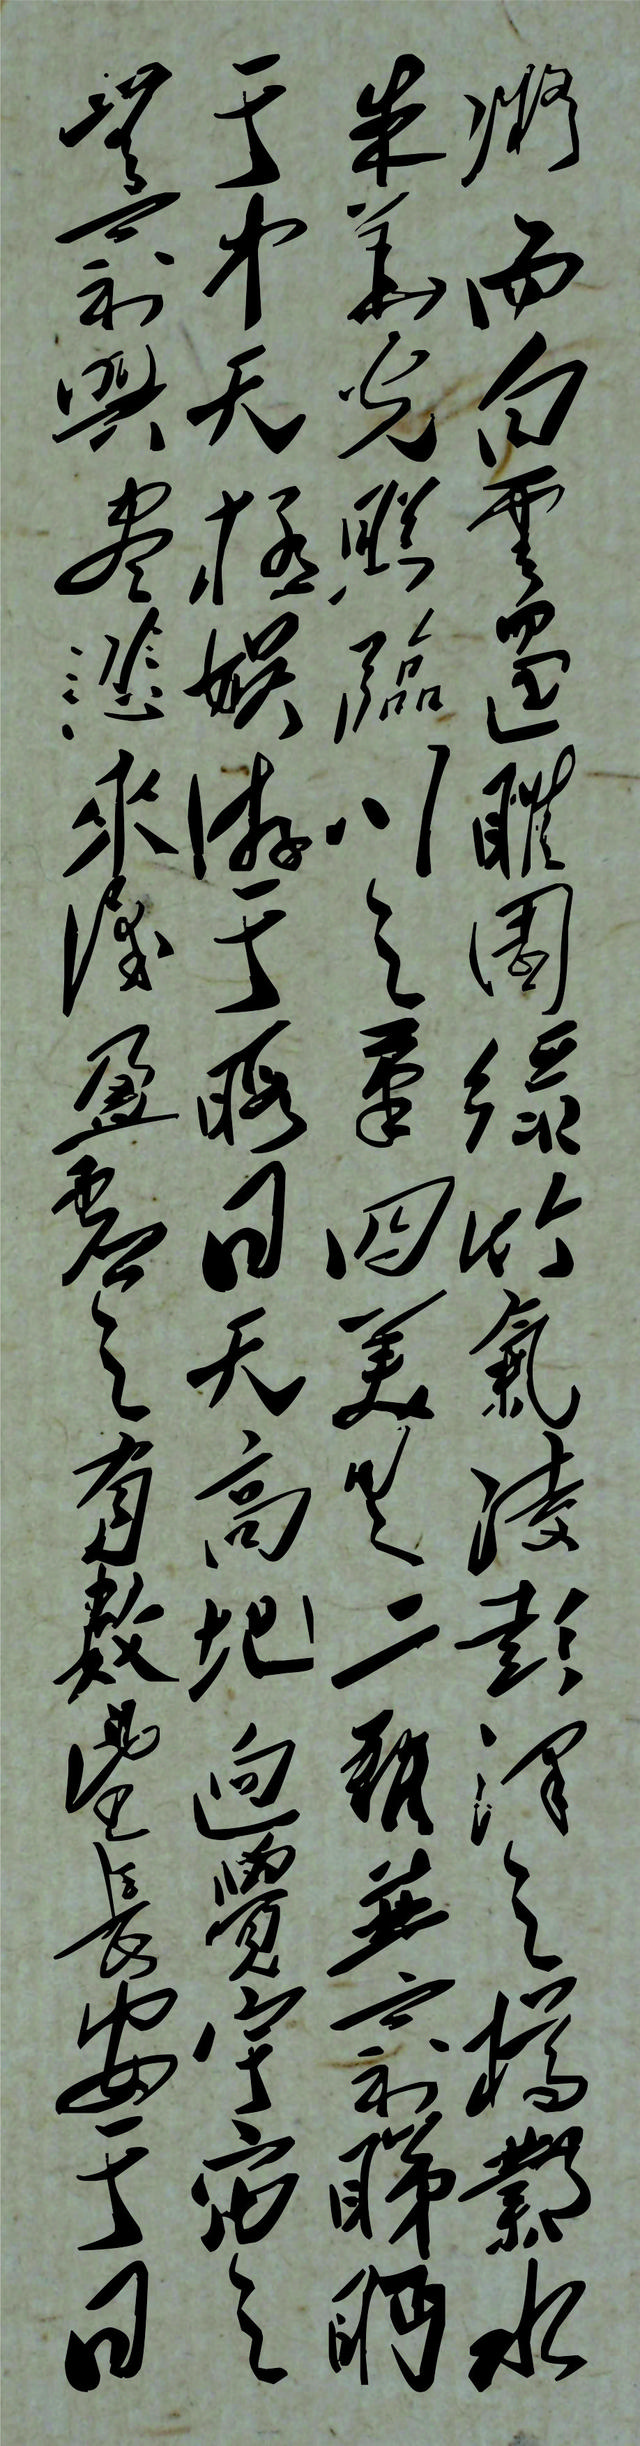 凝而白雲遏睢園綠竹氣凌彭澤之樽鄴水
朱華光照臨川之筆四美具二難並窮睇眄
于中天極娛游于暇日天高地迥覺宇宙之
無窮興盡悲來識盈虛之有數望長安于日